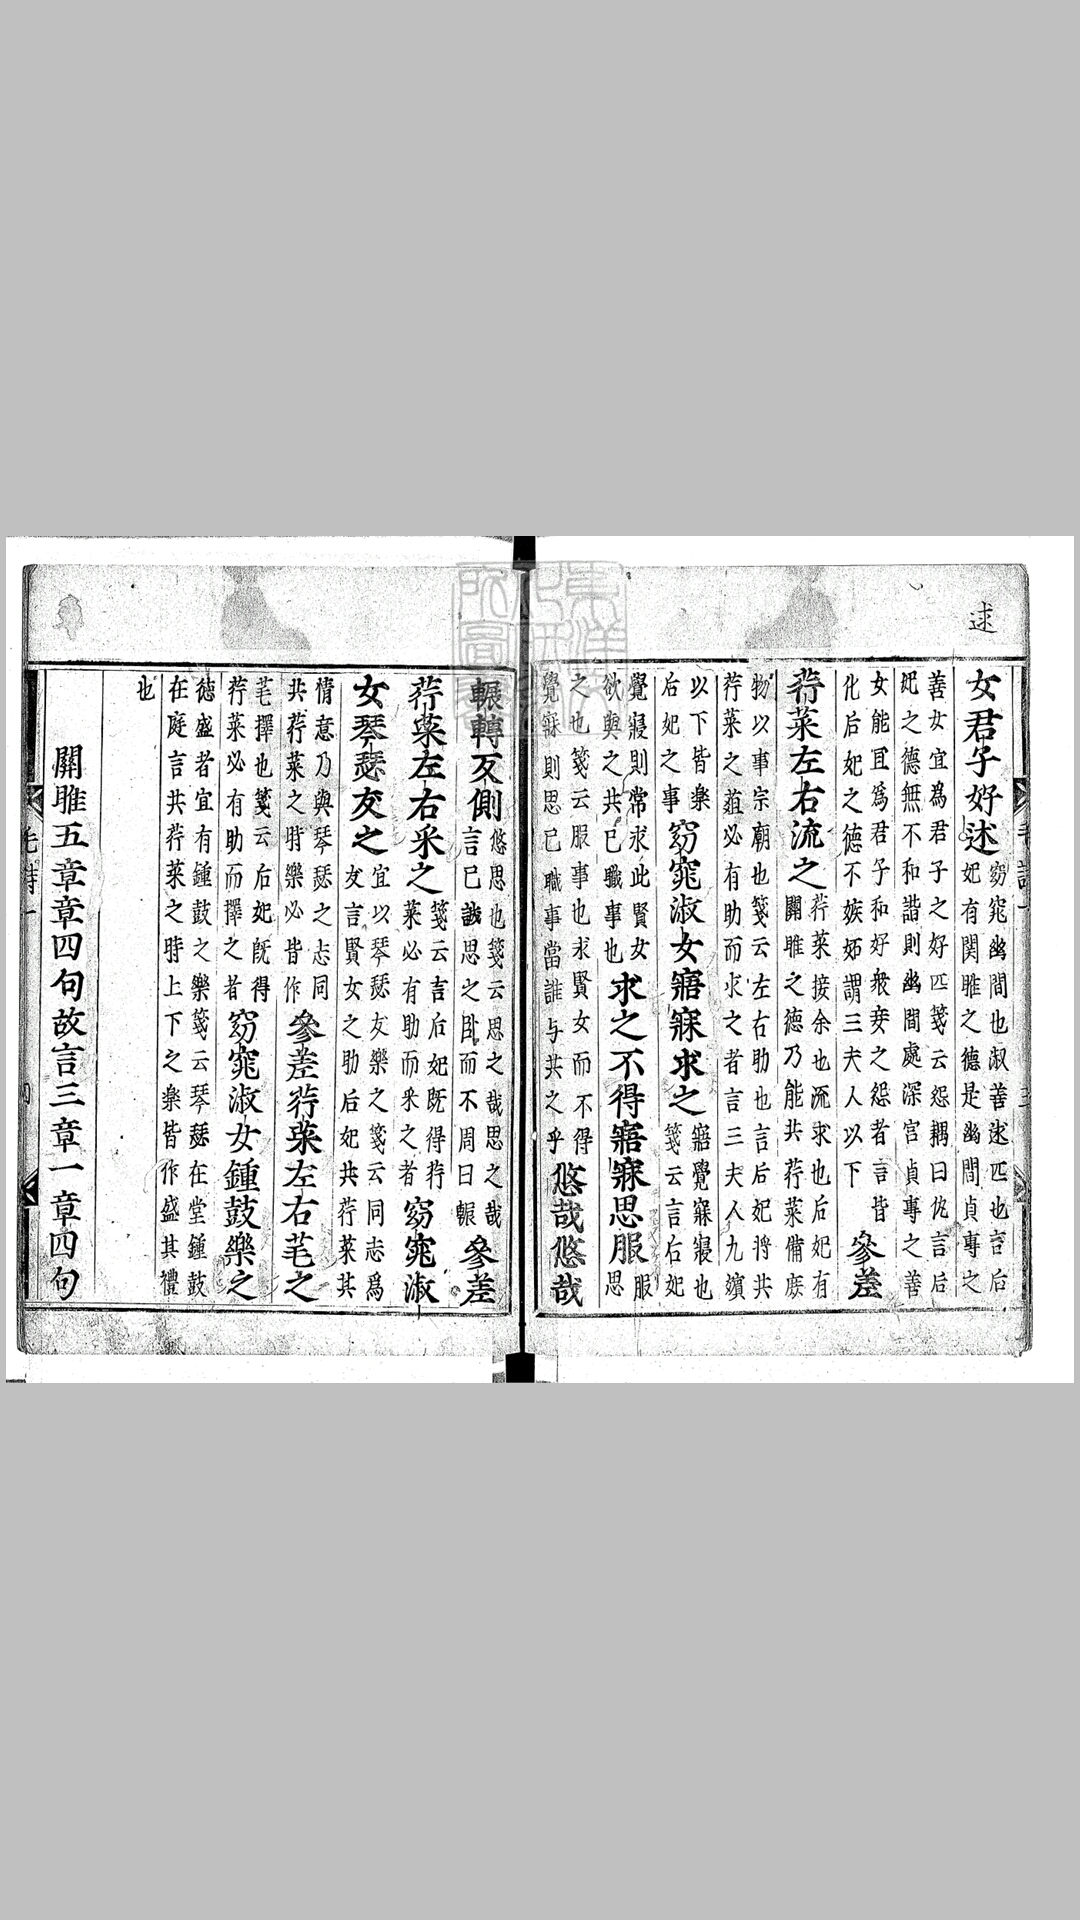 逑
女君子好逑窈窕幽間也淑善逑匹也言后
妃有関雎之德是幽間貞專之
善女宜為君子之好匹箋云怨耦曰仇言后
妃之德無不和諧則幽間處深宮貞專之善
女能冝爲君子和好衆妾之怨者言皆
化后妃之德不嫉妬謂三夫人以下
參差
荇菜左右流之荇菜接余也流求也后妃有
關雎之德乃能共荇菜備庻
物以事宗廟也箋云左右助也言后妃将共
荇菜之葅必有助而求之者言三夫人九嬪
以下皆樂
后妃之事
窈窕淑女寤寐求之寤覺寐寢也
箋云言后妃
覺寢則常求此賢女
欲與之共已職事也
求之不得寤寐思服服
思
之也箋云服事也求賢女而不得
覺寐則思已職事當誰与共之乎
悠哉悠哉
輾轉反側悠思也箋云思之哉思之哉
言已誠思之卧而不周曰輾
參差
荇菜左右采之箋云言后妃既得荇
菜必有助而采之者
窈窕淑
女琴瑟友之宜以琴瑟友樂之箋云同志爲
友言賢女之助后妃共荇菜其
情意乃與琴瑟之志同
共荇菜之時樂必皆作
參差荇菜左右芼之
芼擇也箋云后妃既得
荇菜必有助而擇之者
窈窕淑女鍾鼓樂之
德盛者宜有鍾鼓之樂箋云琴瑟在堂鍾鼓
在庭言共荇菜之時上下之樂皆作盛其禮
也
關雎五章章四句故言三章一章四句
毛詩一